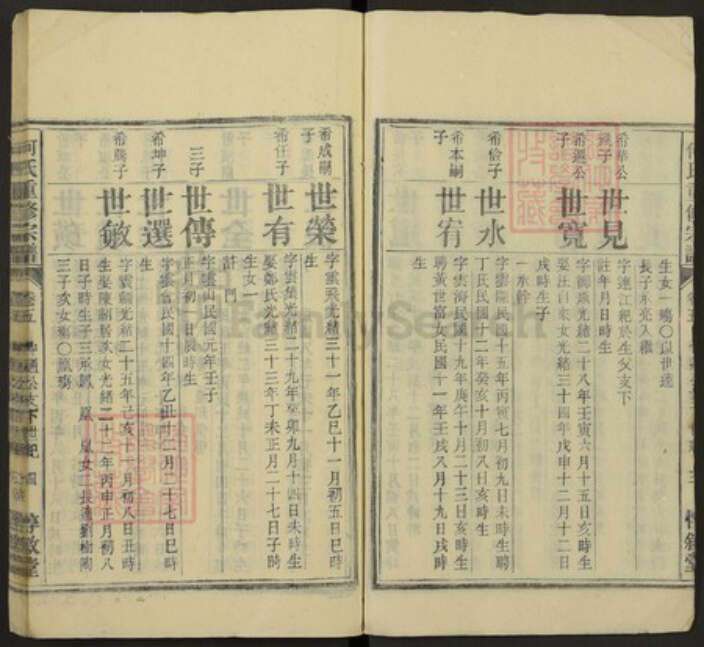 生女一
長子永亮入繼
希華公
繼子
世見
字連江紀於生父支下
註年月日時生
希巡公
子
世寬
光緒二十八年壬寅六月十五日亥時生
娶汪自來女光緒三十四年戊申十二月十二日
戌時生子
一永幹
希倫子
世水
字雲陽民國十五年丙寅七月初九日未時生聘
丁氏民國十二年癸亥十月初八日亥時生
希本嗣
子
世宥
字雲海民國十九年庚午十月二十三日亥時生
聘黃世富女民國十一年壬戌八月十九日戌時
生
希成嗣
子
世榮
字雲飛光緒三十一年乙巳十一月初五日巳時
生
希任子
世有
字雲集光緒二十九年癸卯九月十四日未時生
娶鄭氏光緒三十三年丁未正月二十七日子時
生女一
三子
世傳
字雲山民國元年壬子
正月初一日辰時生
希坤子
世選
字雲會民國十四年乙丑十二月二十七日巳時
生
希騰子
世敏
字雲麟光緒二十五年己亥十一月初八日丑時
生娶陳嗣居次女光緒二十二年丙申正月初八
日子時生子三
三子亥女殤
何氏重修宗譜
卷五
惇敘堂
FamilySearch